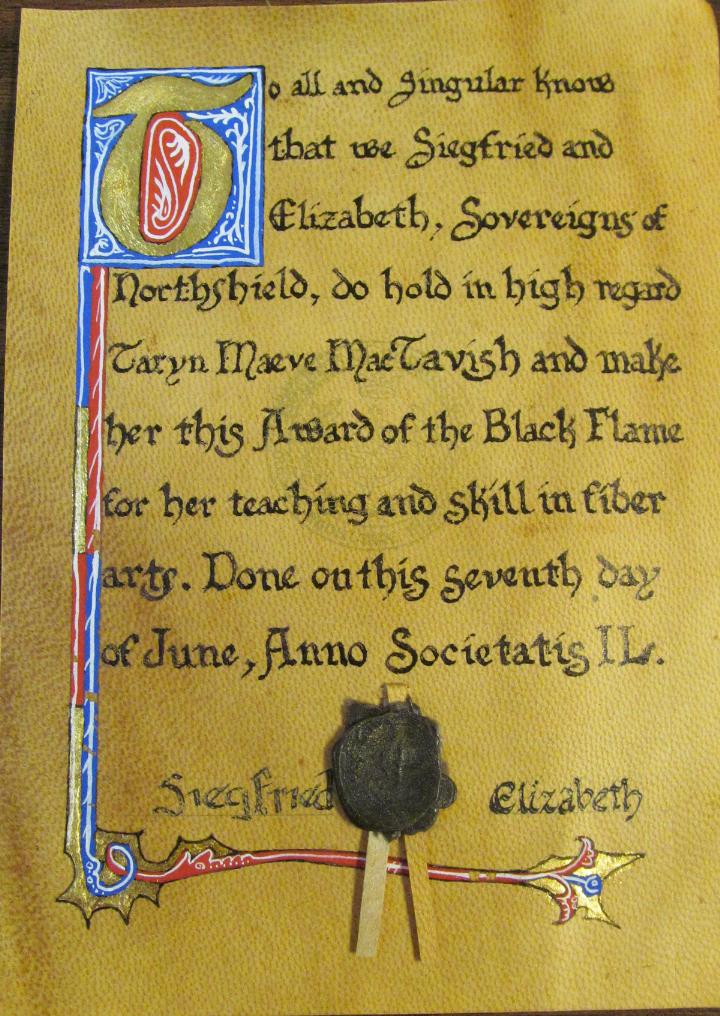 To all and singular know
that we Siegfried and
Elizabeth, Sovereigns of
Northshield, do hold in high regard
Taryn Maeve MacTavish and make
her this Award of the Black Flame
for her teaching and skill in fiber
arts. Done on this seventh day
of June, Anno Societatis IL.
Siegfried Elizabeth